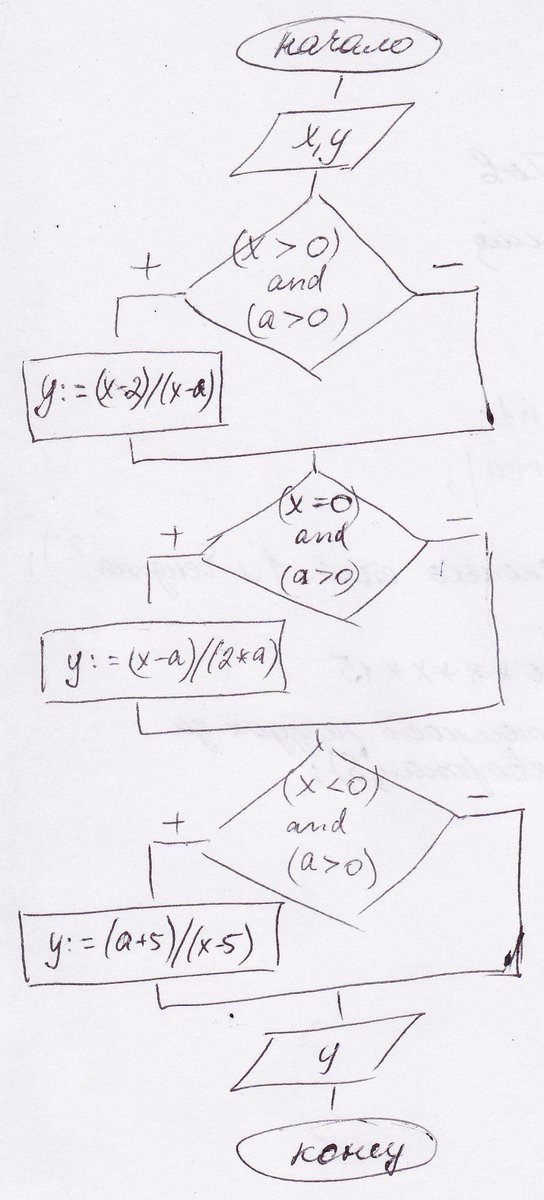 начало
x, y
(x > 0)
and
(a > 0)
+
−
y:=(x-2)/(x-a)
(x=0)
and
(a>0)
+
−
y:=(x-a)/(2*a)
(x<0)
and
(a>0)
+
−
y:=(a+5)/(x-5)
y
конец